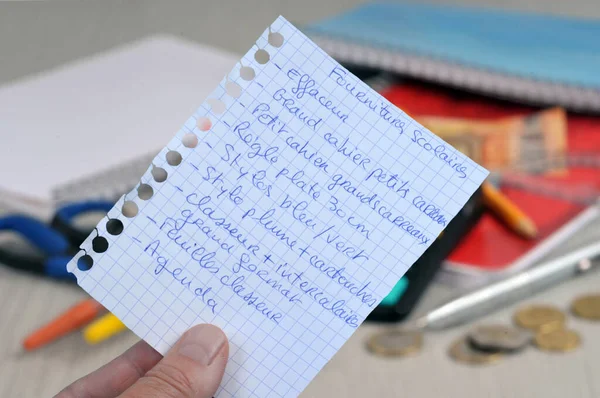 Fournitures scolaires
- Effaceur
- Grand cahier petits carreaux
- Petit cahier grands carreaux
- Règle plate 30cm
- Stylos bleu/vert
- Style plume + cartouches
- classeur + intercalaire
grand format
- Feuilles classeur
- Agenda